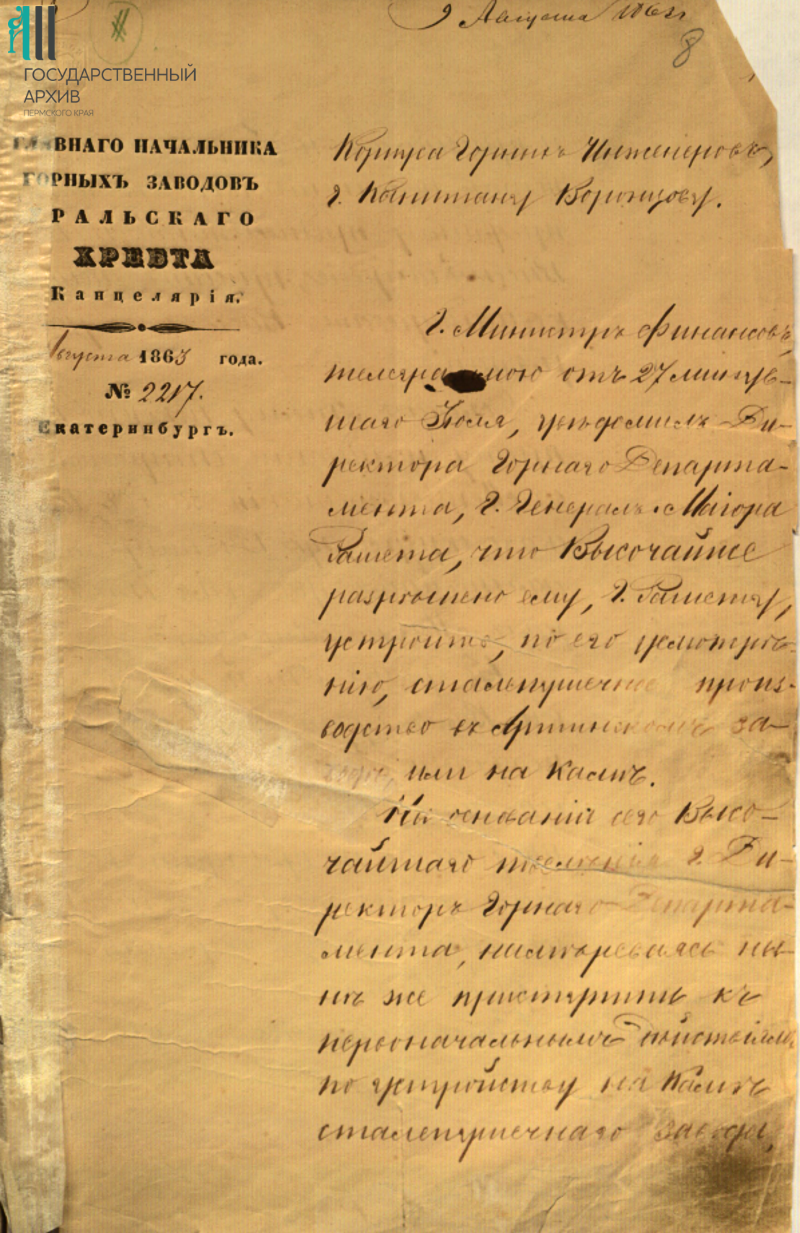 9 Августа 1863 г.
8
ГОСУДАРСТВЕННЫЙ
АРХИВ
ПЕРМСКОГО КРАЯ
ГЛАВНАГО НАЧАЛЬНИКА
ГОРНЫХЪ ЗАВОДОВЪ
УРАЛЬСКАГО
ХРЕБТА
Канцелярія.
Августа 1863 года.
№ 2217.
Екатеринбургъ.
Корпуса Горныхъ Инженеровъ,
г. Капитану Воронцову.
Г. Министръ Финансовъ,
телеграммою отъ 27 минув-
шаго Іюля, увѣдомилъ Ди-
ректора Горнаго Департа-
мента, г. Генералъ-Маіора
Рашета, что Высочайше
разрѣшено ему, г. Рашету,
устроить, по его усмотрѣ-
нію, сталепушечное произ-
водство въ Артинскомъ за-
водѣ, или на Камѣ.
На основаніи сего Высо-
чайшаго повелѣнія г. Ди-
ректоръ Горнаго Департа-
мента, намѣреваясь ны-
нѣ же приступить къ
первоначальнымъ дѣйствіямъ
по устройству на Камѣ
сталепушечнаго завода,